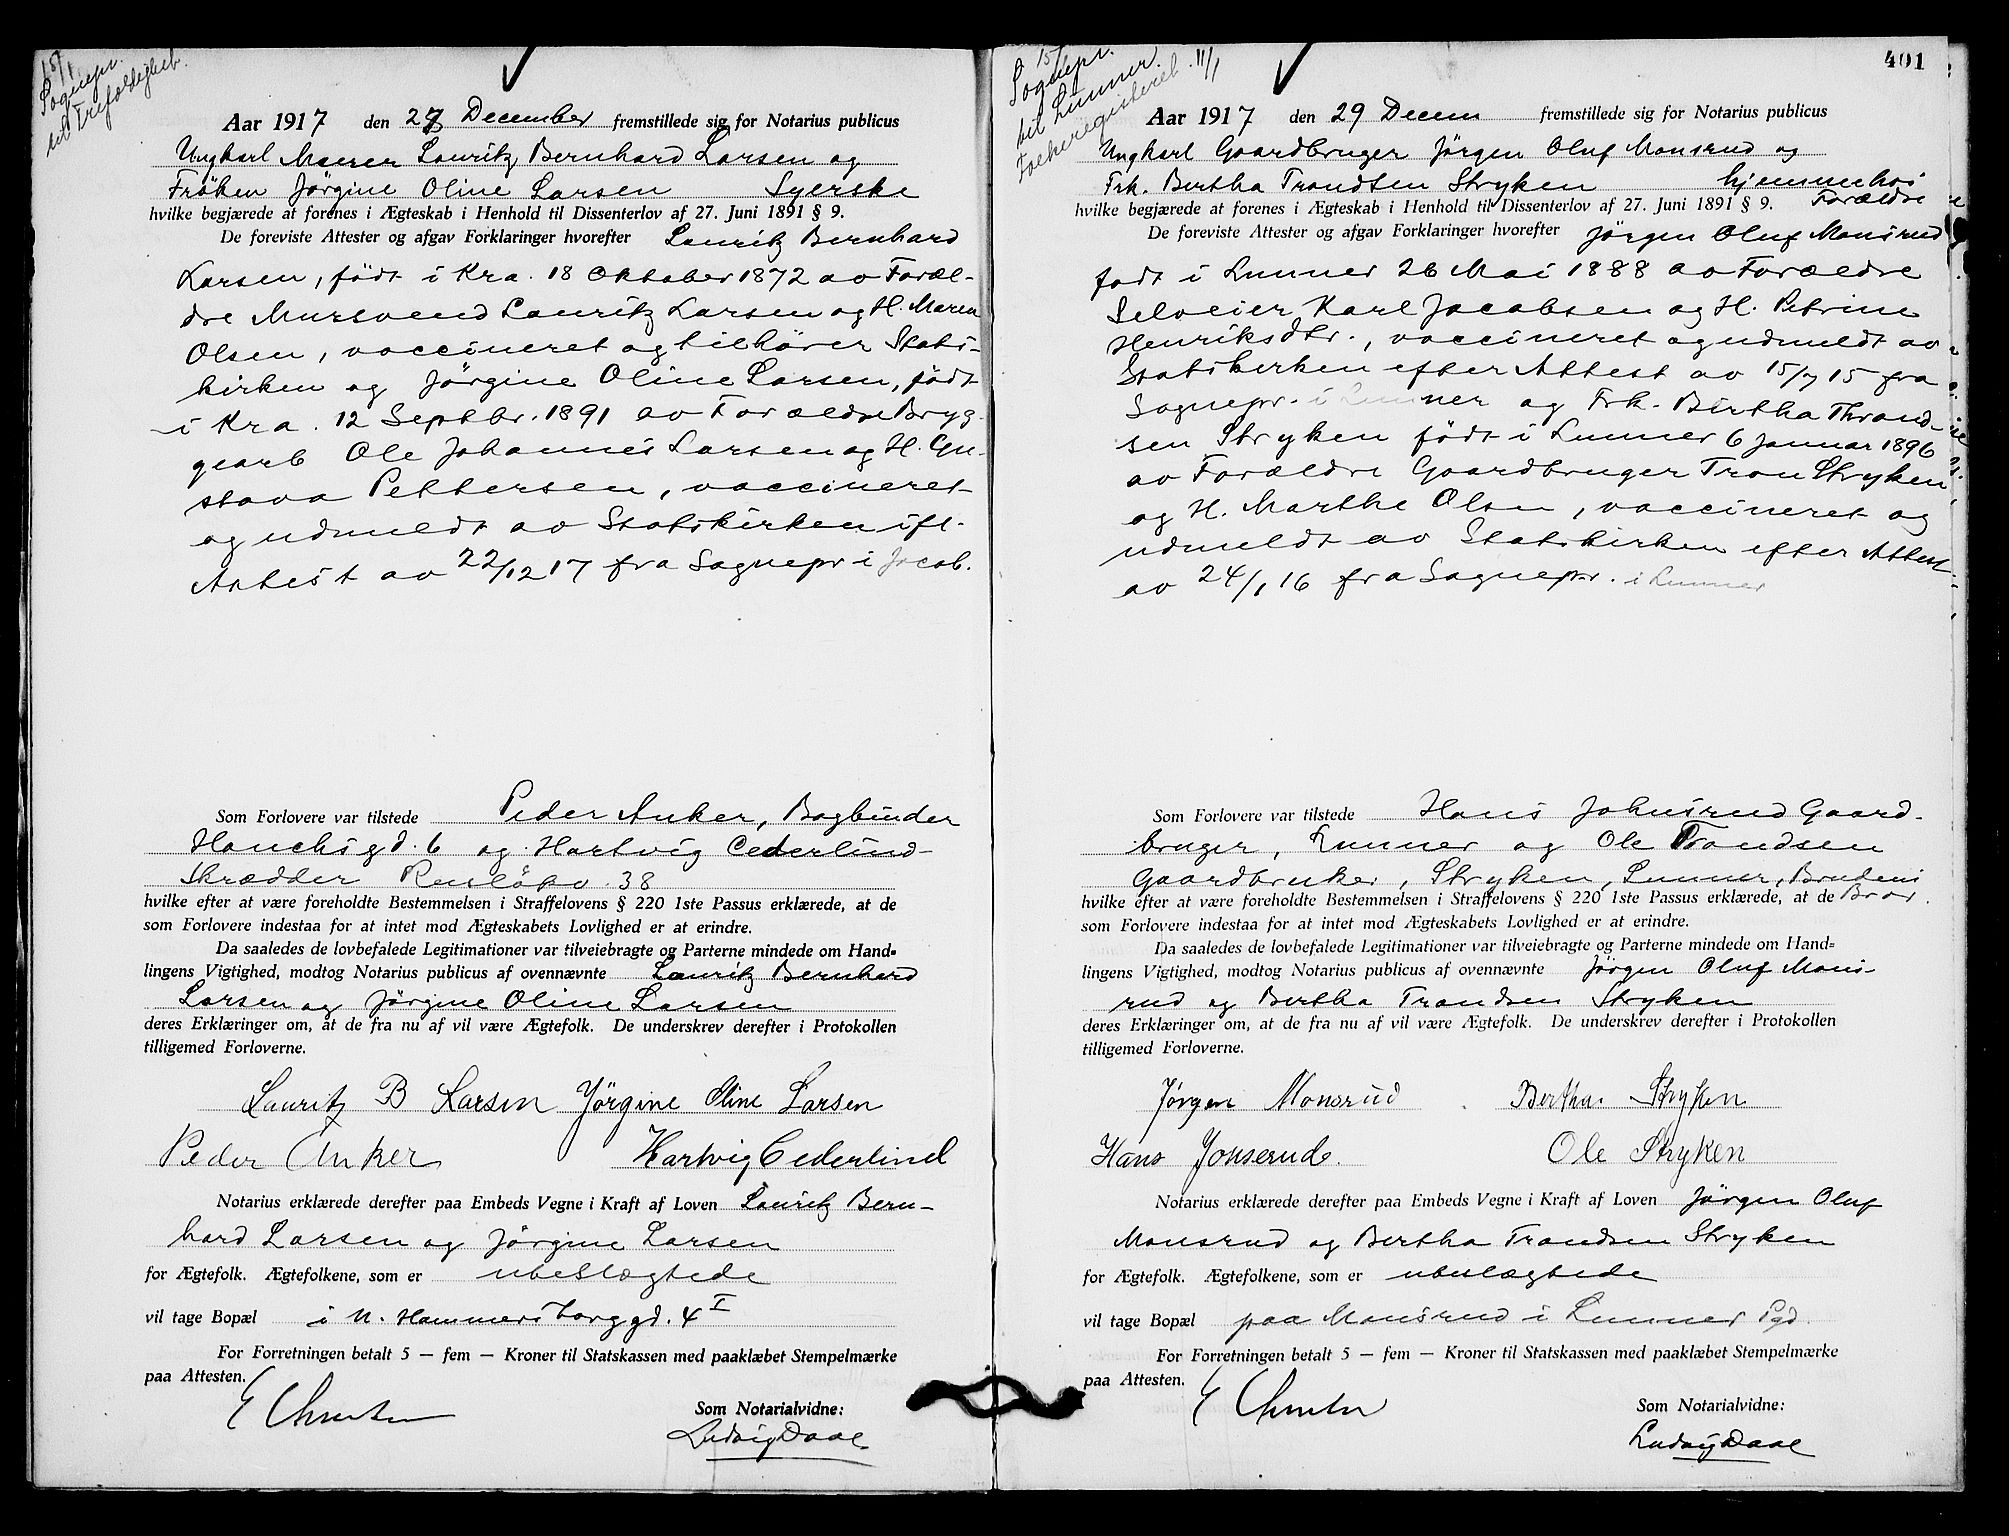 15/1
Sognepr.
til Trefoldighed.
Aar 1917 den 27 December fremstillede sig for Notarius publicus
Ungkarl Murer Lauritz Bernhard Larsen og
Frøken Jørgine Oline Larsen Syerske
hvilke begjærede at forenes i Ægteskab i Henhold til Dissenterlov af 27. Juni 1891 § 9.
De foreviste Attester og afgav Forklaringer hvorefter Lauritz Bernhard
Larsen, født i Kra. 18 Oktober 1872 av Foræl-
dre Mursvend Lauritz Larsen og H. Maren
Olsen, vaccineret og tilhører Stats-
kirken og Jørgine Oline Larsen, født
i Kra. 12 Septbr. 1891 av Forældre Bryg-
gearb Ole Johannes Larsen og H. Gu-
stava Pettersen, vaccineret
og udmeldt av Statskirken ifl.
Attest av 22/12 17 fra Sognepr i Jacob.
Som Forlovere var tilstede Peder Anker, Bogbinder
Hauchsgd. 6 og Hartvig Cederlind
Skrædder 38
hvilke efter at være foreholdte Bestemmelsen i Straffelovens § 220 1ste Passus erklærede, at de
som Forlovere indestaa for at intet mod Ægteskabets Lovlighed er at erindre.
Da saaledes de lovbefalede Legitimationer var tilveiebragte og Parterne mindede om Hand-
lingens Vigtighed, modtog Notarius publicus af ovennævnte Lauritz Bernhard
Larsen og Jørgine Oline Larsen
deres Erklæringer om, at de fra nu af vil være Ægtefolk. De underskrev derefter i Protokollen
tilligemed Forloverne.
Lauritz B Larsen Jörgine Oline Larsen
Peder Anker Hartvig Cederlind
Notarius erklærede derefter paa Embeds Vegne i Kraft af Loven Lauritz Bern-
hard Larsen og Jørgine Larsen
for Ægtefolk. Ægtefolkene, som er ubeslægtede
vil tage Bopæl i N. Hammersborggd. 4 I
For Forretningen betalt 5 — fem — Kroner til Statskassen med paaklæbet Stempelmærke
paa Attesten.
Som Notarialvidne:
Ludvig Daae
401
15/1
Sognepr.
til Lunner.
Folkeregisteret. 11/1
Aar 1917 den 29 Decem fremstillede sig for Notarius publicus
Ungkarl Gaardbruger Jørgen Oluf Monsrud og
Frk. Bertha Trondsen Stryken hjemme hos
hvilke begjærede at forenes i Ægteskab i Henhold til Dissenterlov af 27. Juni 1891 § 9. Forældre
De foreviste Attester og afgav Forklaringer hvorefter Jørgen Oluf Monsrud
født i Lunner 26 Mai 1888 av Forældre
Selveier Karl Jacobsen og H. Petrine
Henriksdtr., vaccineret og udmeldt av
Statskirken efter Attest av 15/7 15 fra
Sognepr. i Lunner og Frk. Birtha Thrond-
sen Stryken født i Lunner 6 Januar 1896
av Forældre Gaardbruger Tron Stryken
og H. Marthe Olsen, vaccineret og
udmeldt av Statskirken efter Attest
av 24/1 16 fra Sognepr. i Lunner
Som Forlovere var tilstede Hans Johnsrud Gaard-
bruger, Lunner og Ole Trondsen
Gaardbruker, Stryken, Lunner, Brudens
hvilke efter at være foreholdte Bestemmelsen i Straffelovens § 220 1ste Passus erklærede, at de Bror.
som Forlovere indestaa for at intet mod Ægteskabets Lovlighed er at erindre.
Da saaledes de lovbefalede Legitimationer var tilveiebragte og Parterne mindede om Hand-
lingens Vigtighed, modtog Notarius publicus af ovennævnte Jørgen Oluf Mons-
rud og Bertha Trondsen Stryken
deres Erklæringer om, at de fra nu af vil være Ægtefolk. De underskrev derefter i Protokollen
tilligemed Forloverne.
Jørgen Monsrud Bertha Stryken
Hans Jonserud. Ole Stryken
Notarius erklærede derefter paa Embeds Vegne i Kraft af Loven Jørgen Oluf
Monsrud og Bertha Trondsen Stryken
for Ægtefolk. Ægtefolkene, som er ubeslægtede
vil tage Bopæl paa Monsrud i Lunner Pgd.
For Forretningen betalt 5 — fem — Kroner til Statskassen med paaklæbet Stempelmærke
paa Attesten.
Som Notarialvidne:
Ludvig Daae